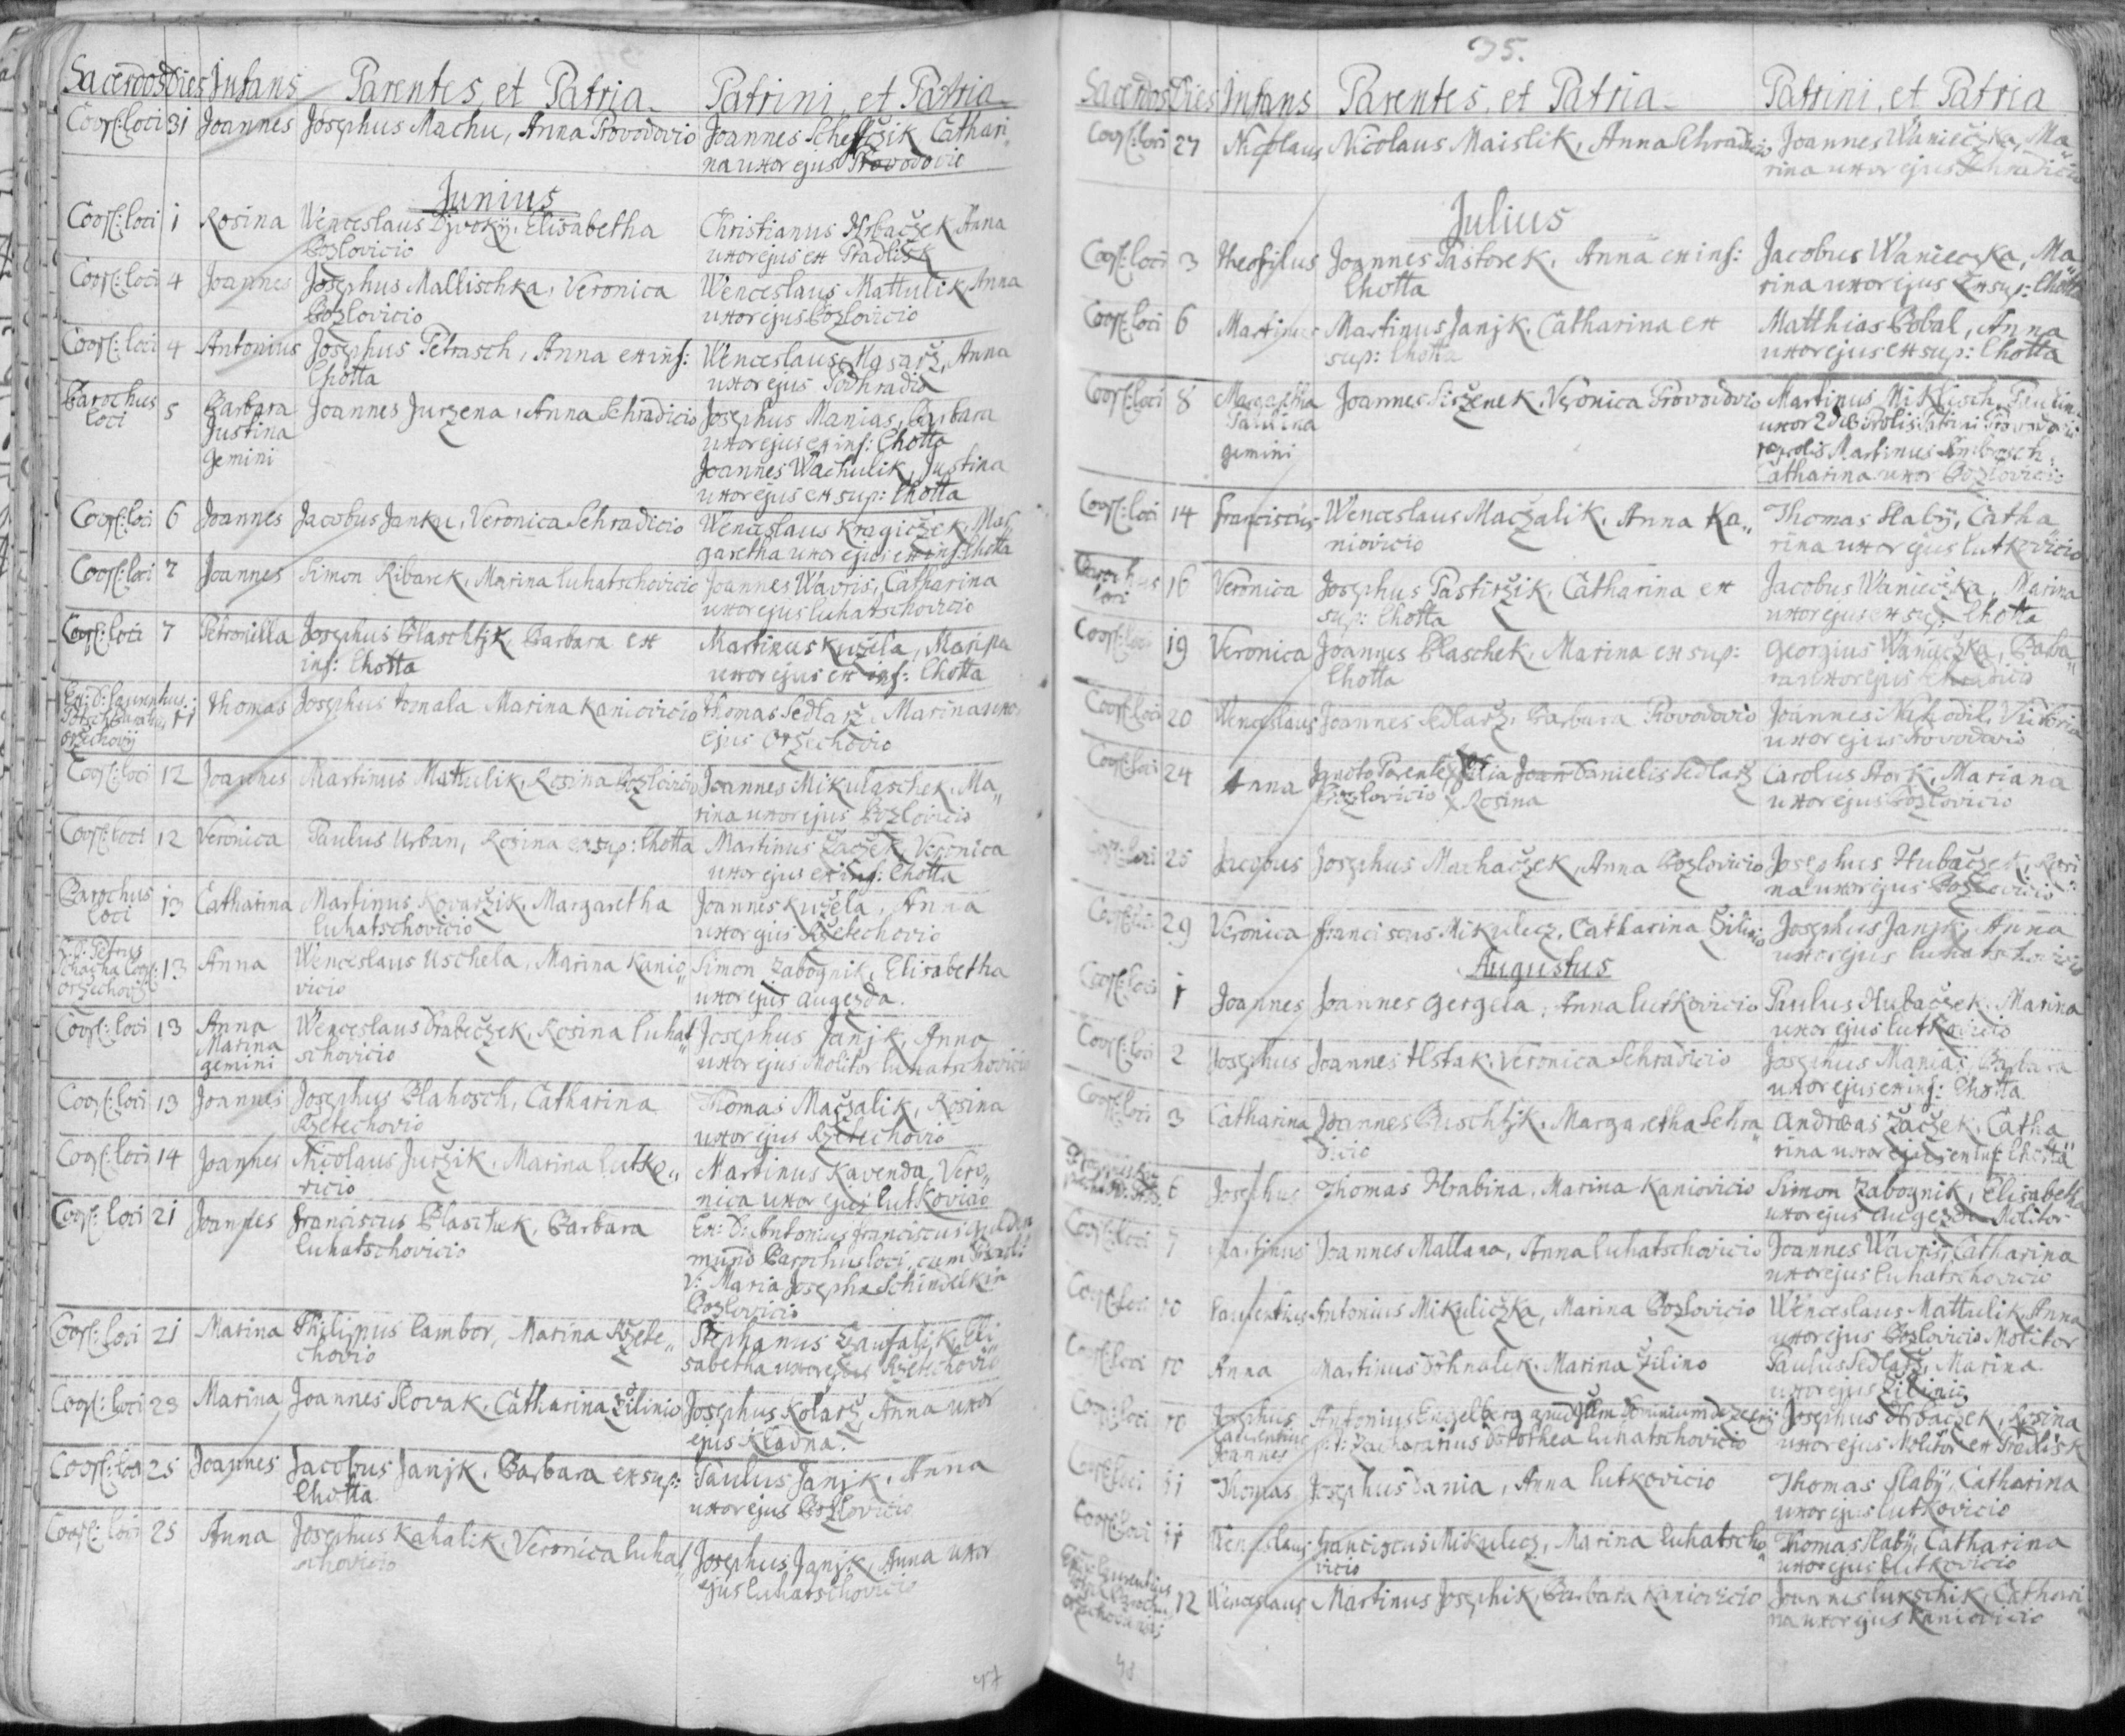 Sacerdos Dies Infans Parentes, et Patria Patrini, et Patria
Coop: loci 31 Joannes Josephus Machu, Anna Provodovio Joannes Scheftzik Cathari„
na uxor ejus Provodovio
Junius
Coop: loci 1 Rosina Wenceslaus Djwoky, Elisabetha Christianus Hrbaczek Anna
Pozlovicio uxor ejus ex Hradlisk
Coop: loci 4 Joannes Josephus Mallischka, Veronica Wenceslaus Mattulik, Anna
Pozlovicio uxor ejus Pozlovicio
Coop: loci 4 Antonius Josephus Petrasch, Anna ex inf: Wenceslaus Masarz, Anna
Lhotta uxor ejus Podhradio
Parochus loci 5 Barbara Joannes Jurzena, Anna Sehradicio Josephus Manias, Barbara
Justina uxor ejus ex inf: Lhotta
gemini Joannes Wachulik, Justina
uxor ejus ex sup: Lhotta
Coop: loci 6 Joannes Jacobus Janku, Veronica Sehradicio Wenceslaus Kragiczek, Mar
garetha uxor ejus ex inf: Lhotta
Coop: loci 7 Joannes Simon Ribarek, Marina Luhatschovicio Joannes Wavris, Catharina
uxor ejus Luhatschovicio
Coop: loci 7 Petronilla Josephus Blaschtjk Barbara ex Martinus Kuzela, Marina
inf: Lhotta uxor ejus ex inf: Lhotta
Ex: D: Laurentius
11 Thomas Josephus Marina Kaniovicio Thomas Sedlarz, Marina uxor
orzechovij ejus Orzechovio
Coop: loci 12 Joannes Martinus Mattulik, Rosina Pozlovicio Joannes Mikulaschek, Ma„
rina uxor ejus Pozlovicio
Coop: loci 12 Veronica Paulus Urban, Rosina ex sup: Lhotta Martinus Zaczek, Veronica
uxor ejus ex inf: Lhotta
Parochus loci 13 Catharina Martinus Kovarzik, Margaretha Joannes Kuzela, Anna
Luhatschovicio uxor ejus Rzetechovio
Petrus
13 Anna Wenceslaus Uschela, Marina Kanio„ Simon Zabognik, Elisabetha
vicio uxor ejus Augezda.
Coop: loci 13 Anna Wenceslaus Drabeczek, Rosina Luhat„ Josephus Janjk, Anna
Marina schovicio uxor ejus Molitor Luhatschovicio
gemini
Coop: loci 13 Joannes Josephus Blahosch, Catharina Thomas Maczalik, Rosina
Rzetechovio uxor ejus Rzetechovio
Coop: loci 14 Joannes Nicolaus Jurzik, Marina Lutko„ Martinus Kavenda, Vero„
vicio nica uxor ejus Lutkovicio
Coop: loci 21 Joannes Franciscus Blaschek, Barbara Ex: D: Antonius Franciscus Gulden
Luhatschovicio mund Parochus loci, cum
V: Maria Josepha Schindelkin
Pozlovicio
Coop: loci 21 Marina Philippus Cambor, Marina Rzete„ Stephanus Zaufalik, Eli
chovio sabetha uxor ejus Rzetechovio
Coop: loci 23 Marina Joannes Slovak, Catharina Zilinio Josephus Kolarz, Anna uxor
ejus Kladna.
Coop: loci 25 Joannes Jacobus Janjk, Barbara ex sup: Paulus Janjk, Anna
Lhotta. uxor ejus Pozlovicio
Coop: loci 25 Anna Josephus Kahalik, Veronica Luhat„ Josephus Janjk, Anna uxor
schovicio ejus Luhatschovicio
47
35.
Sacerdos Dies Infans Parentes, et Patria Patrini, et Patria
Coop: loci 27 Nicolaus Nicolaus Maislik, Anna Sehradicio Joannes Wanieczka, Ma„
rina uxor ejus Sehradicio
Julius
Coop: loci 3 Theofilus Joannes Pastorek, Anna ex inf: Jacobus Wanieczka, Ma„
Lhotta rina uxor ejus ex sup: Lhotta
Coop: loci 6 Martinus Martinus Janjk, Catharina ex Matthias Bobal, Anna
sup: Lhotta uxor ejus ex sup: Lhotta
Coop: loci 8 Margaretha Joannes Sirzenek, Veronica Provodovio Martinus Miklisch, Paulina
Paulina uxor Prolis Patrini Provodovio
gemini Martinus Ambrosch,
Catharina uxor Pozlovicio
Coop: loci 14 Franciscus Wenceslaus Maczalik, Anna Ka„ Thomas Slaby, Catha
niovicio rina uxor ejus Lutkovicio
Parochus loci 16 Veronica Josephus Pastirzik, Catharina ex Jacobus Wanieczka, Marina
sup: Lhotta uxor ejus ex sup: Lhotta
Coop: loci 19 Veronica Joannes Blaschek, Marina ex sup: Georgius Wanieczka, Barba„
Lhotta ra uxor ejus Sehradicio
Coop: loci 20 Wenceslaus Joannes Sedlarz, Barbara Provodovio Joannes Nakodil, Victoria
uxor ejus Provodovio
Coop: loci 24 Anna Ignoto Parente, Filia Joan Danielis Sedlarz Carolus Stork, Mariana
Pozlovicio Rosina uxor ejus Pozlovicio
Coop: loci 25 Jacobus Josephus Machaczek, Anna Pozlovicio Josephus Hubaczek, Rosi
na uxor ejus Pozlovicio
Coop: loci 29 Veronica Franciscus Mikulecz, Catharina Zilinio Josephus Janjk, Anna
uxor ejus Luhatschovicio
Augustus
Coop: loci 1 Joannes Joannes Gergela, Anna Lutkovicio Paulus Hubaczek, Marina
uxor ejus Lutkovicio
Coop: loci 2 Josephus Joannes Hstak, Veronica Sehradicio Josephus Manias, Barbara
uxor ejus ex inf: Lhotta.
Coop: loci 3 Catharina Joannes Buschtjk, Margaretha Sehra„ Andreas Zaczek, Catha
dicio rina uxor ejus ex inf: Lhotta
6 Josephus Thomas Hrabina, Marina Kaniovicio Simon Zabognik, Elisabetha
uxor ejus Augezda Molitor
Coop: loci 7 Martinus Joannes Mallana, Anna Luhatschovicio Joannes Wavris, Catharina
uxor ejus Luhatschovicio
Coop: loci 10 Laurentius Antonius Mikuliczka, Marina Pozlovicio Wenceslaus Mattulik, Anna
uxor ejus Pozlovicio Molitor
Coop: loci 10 Anna Martinus Dohnalek, Marina Zilino Paulus Sedlarz, Marina
uxor ejus Zilinio
Coop: loci 10 Josephus Antonius Engelberg Josephus Hrbaczek, Rosina
Laurentius Dorothea Luhatschovicio uxor ejus Molitor ex Hradlisk
Joannes
Coop: loci 11 Thomas Josephus Dania, Anna Lutkovicio Thomas Slaby, Catharina
uxor ejus Lutkovicio
Coop: loci 11 Wenceslaus Franciscus Mikulecz, Marina Luhatscho„ Thomas Slaby, Catharina
vicio uxor ejus Lutkovicio
Laurentius
12 Wenceslaus Martinus Josephik, Barbara Kaniovicio Joannes Lukschik, Cathari
na uxor ejus Kaniovicio
48